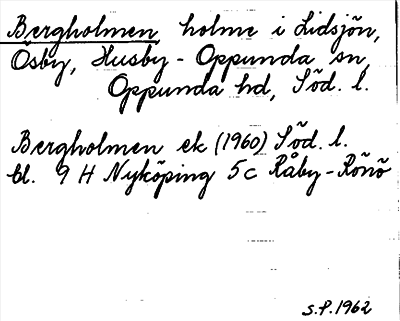 Bergholmen holme i Lidsjön,
Ösby, Husby-Oppunda sn,
Oppunda hd, Söd. l.
Bergholmen ek (1960) Söd. l.
bl. 9 H Nyköping 5c Råby-Rönö
S.P. 1962